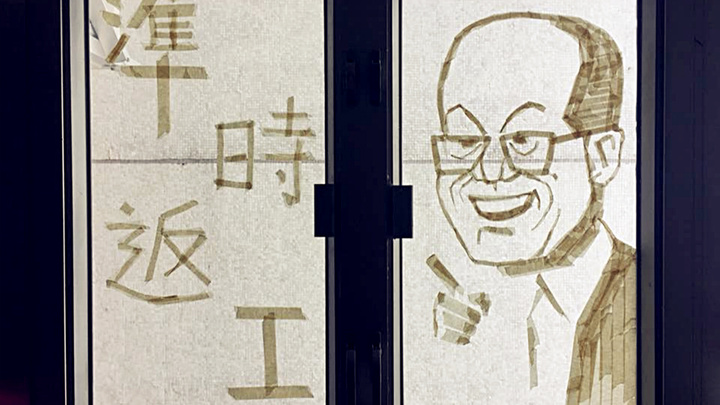 準
時
返
工